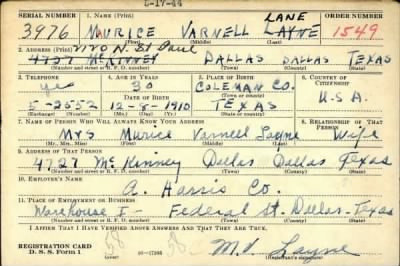 5-17-44
SERIAL NUMBER 1. NAME (Print) LANE ORDER NUMBER
3976 MURICE VARNELL LAYNE 1549
(First) (Middle) (Last)
2. ADDRESS (Print) 2120 N. St Paul
4727 McKINNEY DALLAS DALLAS TEXAS
(Number and street or R. F. D. number) (Town) (County) (State)
3. TELEPHONE 4. AGE IN YEARS 5. PLACE OF BIRTH 6. COUNTRY OF CITIZENSHIP
yes 30 COLEMAN CO.
DATE OF BIRTH (Town or county)
5-2552 12-8-1910 TEXAS U.S.A.
(Exchange) (Number) (Mo.) (Day) (Yr.) (State or country)
7. NAME OF PERSON WHO WILL ALWAYS KNOW YOUR ADDRESS 8. RELATIONSHIP OF THAT PERSON
Mrs Murice Varnell Layne Wife
(Mr., Mrs., Miss) (First) (Middle) (Last)
9. ADDRESS OF THAT PERSON
4727 McKinney Dallas Dallas Texas
(Number and street or R. F. D. number) (Town) (County) (State)
10. EMPLOYER'S NAME
A. Harris Co.
11. PLACE OF EMPLOYMENT OR BUSINESS
Warehouse I- Federal St. Dallas-Texas
(Number and street or R. F. D. number) (Town) (County) (State)
I AFFIRM THAT I HAVE VERIFIED ABOVE ANSWERS AND THAT THEY ARE TRUE.
REGISTRATION CARD
D. S. S. Form 1 16-17105 M.V. Layne